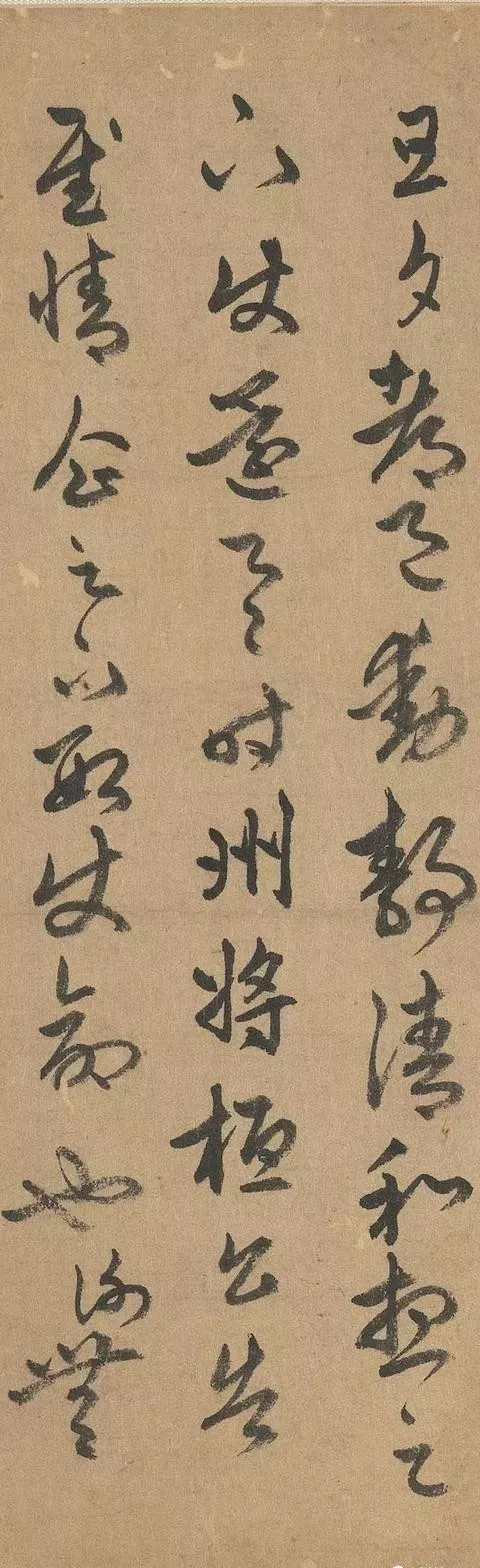 旦夕都邑動靜清和想足
下使還一一時州將桓公告
慰情企足下數使命也謝無